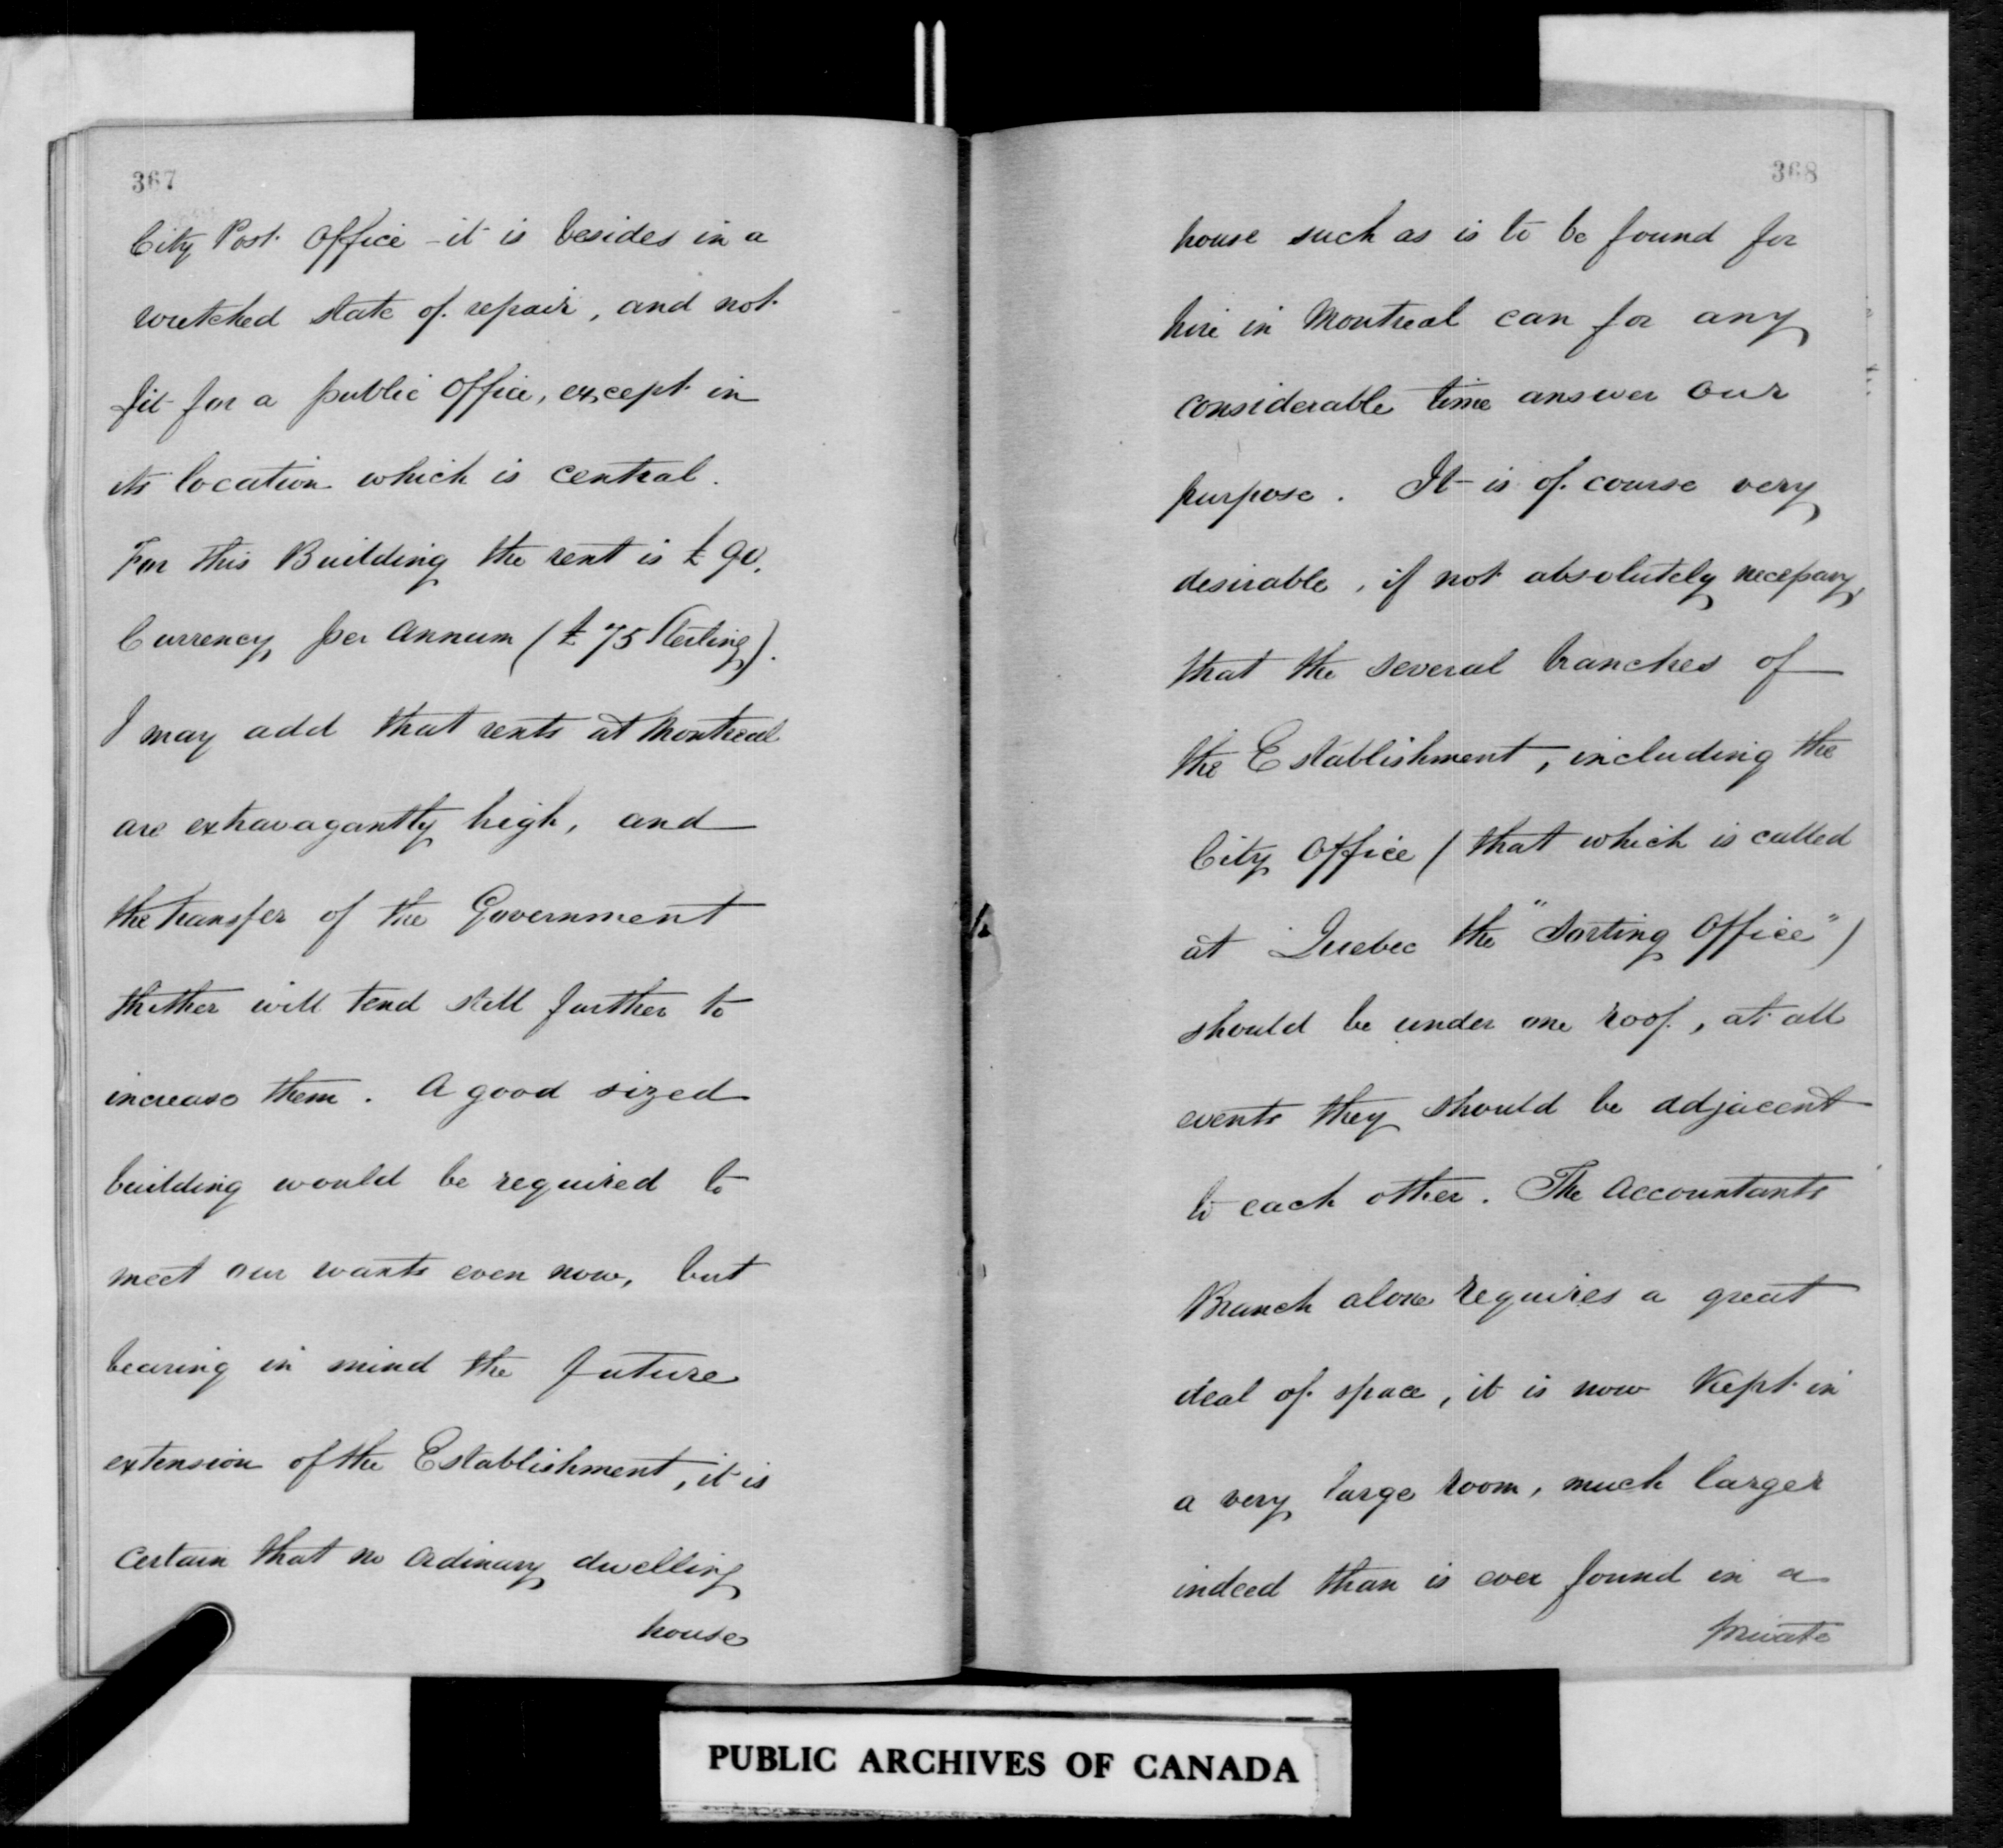 367
City Post Office - it is besides in a
wretched state of repair, and not
fit for a public Office, except in
its location which is central.
For this Building the rent is £90.
Currency per Annum (£75 Sterling).
I may add that rents at Montreal
are extravagantly high, and
the transfer of the Government
thither will tend still further to
increase them. A good sized
building would be required to
meet our wants even now, but
bearing in mind the future
extension of the Establishment, it is
certain that no ordinary dwelling
house
368
house such as is to be found for
hire in Montreal can for any
considerable time answer our
purpose. It is of course very
desirable, if not absolutely necessary,
that the several branches of
the Establishment, including the
City Office (that which is called
at Quebec the "Sorting Office")
should be under one roof, at all
events they should be adjacent
to each other. The Accountants
Branch alone requires a great
deal of space, it is now kept in
a very large room, much larger
indeed than is ever found in a
private
PUBLIC ARCHIVES OF CANADA